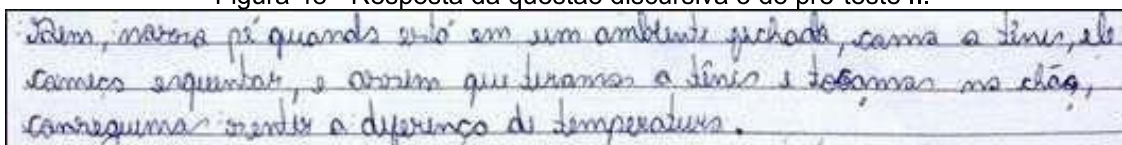 Figura 43 - Resposta da questão discursiva 6 do pré-teste n.
Bem, nosso pé quando está em um ambiente fechado, como o tênis, ele
começa esquentar, e assim que tiramos o tênis e tocamos no chão,
conseguimos sentir a diferença de temperatura.